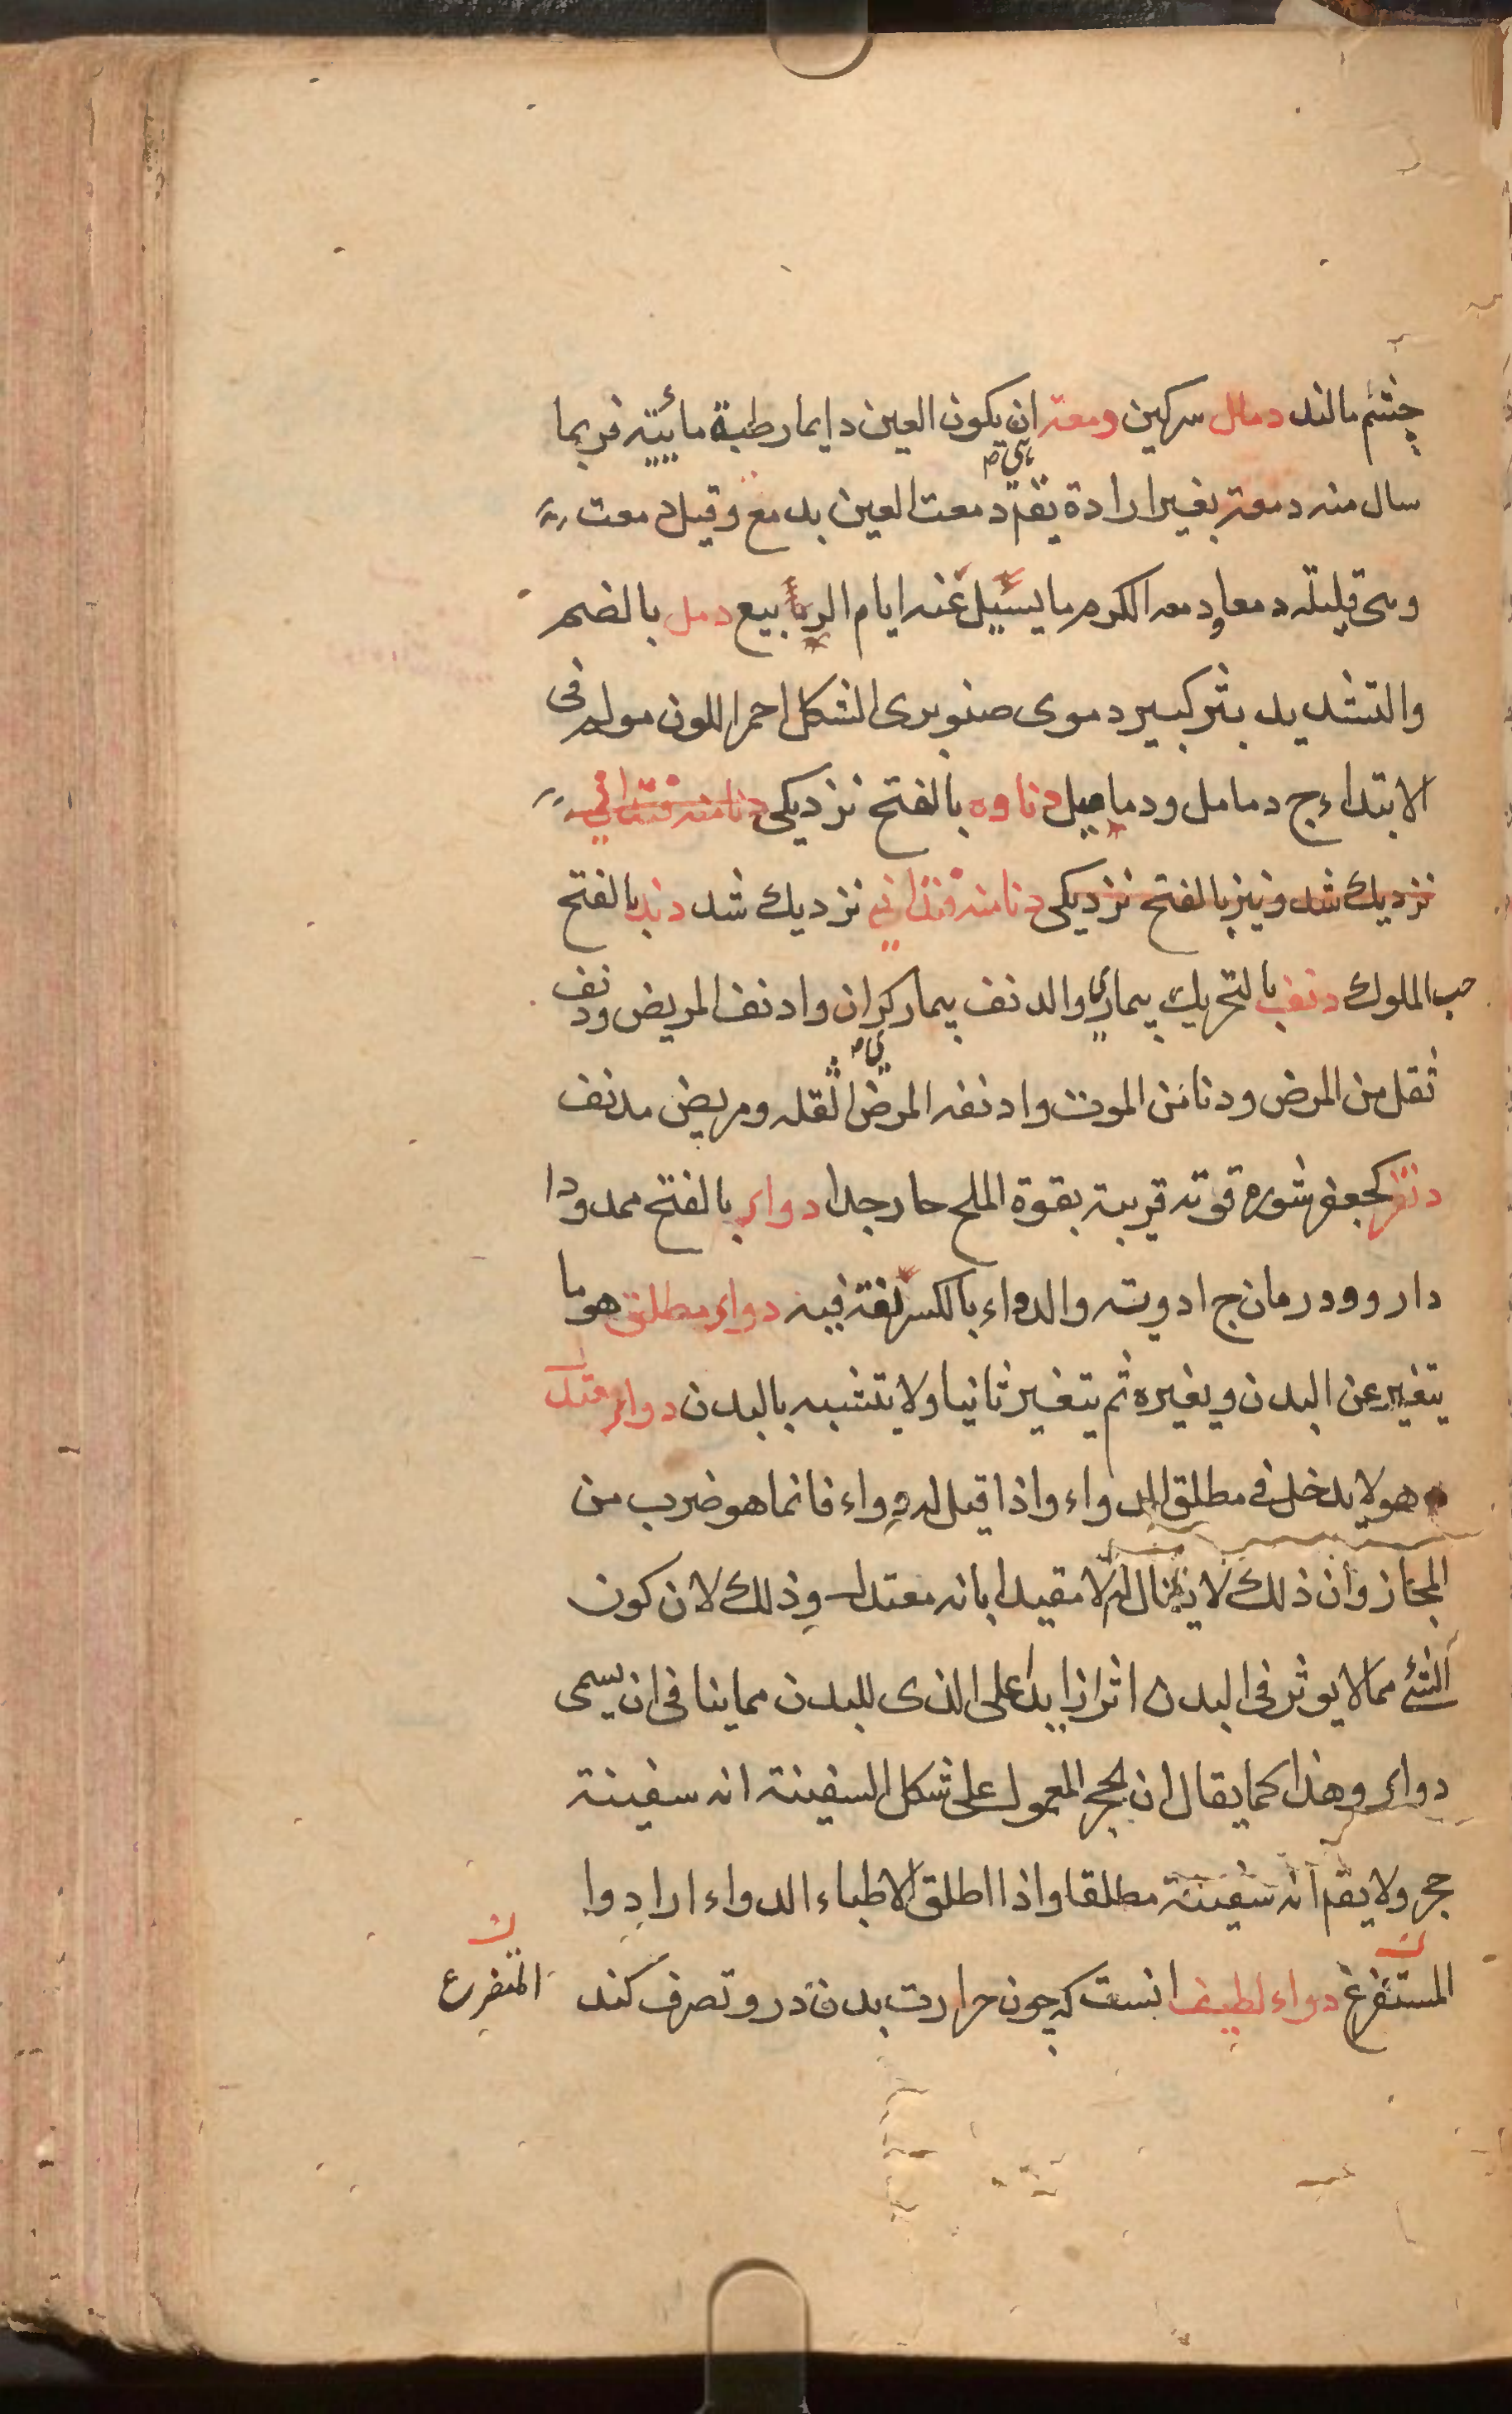 چشم مالند دمال سرکین ومعته ان یکون العین دایما رطبة مائیته فربما
سال منه دمعته بغیر ارادة یقم دمعت العین بدمع وقیل دمعت
وهی قلیله دمعا ودمعه الکرم ما یسیل عنه ایام الربیع دمل بالضم
والتشدید بثر کبیر دموی صنوبری الشکل احمر اللون مولم فی
الابتداء ج دمامل ودمامیل دناوه بالفتح نزدیکی دنا منه فتدانی
نزدیك شد ونیز بالفتح نزدیکی دنا منه فتدانی نزدیك شد دند بالفتح
حب الملوك دنف بالتحریك بیماری والدنف بیمار کران وادنف المریض ودنف
ثقل من المرض ودنا من الموت وادنفه المرض اثقله ومریض مدنف
کجعفر شوره قوته قریبة بقوة الملح حار جدا دواء بالفتح ممدودا
دارو ودرمان ج ادویته والدواء بالکسر لغة فیه دواء مطلق هو ما
یتغیر عن البدن ویغیره ثم یتغیر ثانیا ولا یتشبه بالبدن دواء معتدل
هو لا یدخل فی مطلق الدواء واذا قیل له دواء فانما هو ضرب من
المجاز وان ذلك لا یقال له الا مقیدا بانه معتدل وذلك لان کون
الشئ مما لا یوثر فی البدن اثرا زایدا علی الذی للبدن مما ینافی ان یسمی
دواء وهذا کما یقال ان الحجر المعمول علی شکل السفینة انه سفینة
حجر ولا یقم انه سفینة مطلقا واذا اطلق الاطباء الدواء ارادوا
المستفرغ دواء لطیف انست که چون حرارت بدن درو تصرف کند
المتفرع